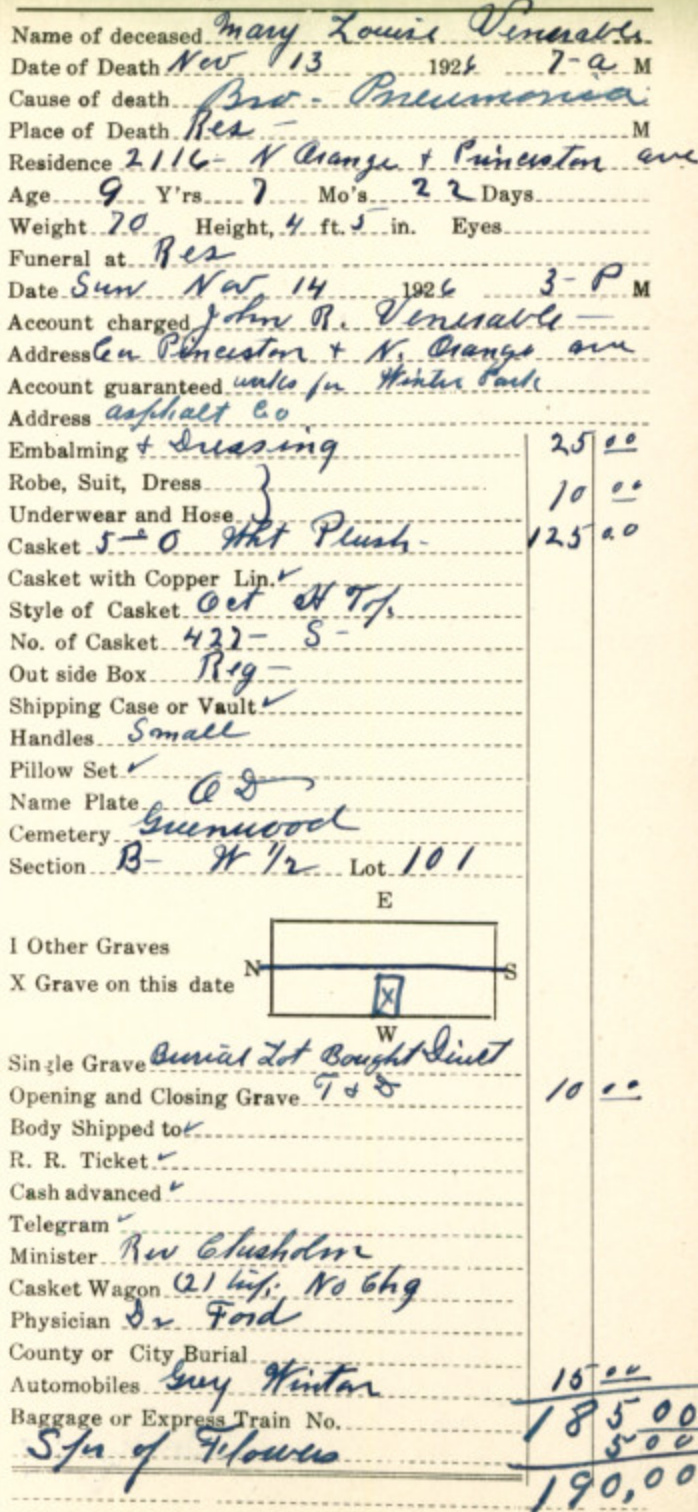 Name of deceased Mary Louise Venerable
Date of Death Nov 13 1926 7-a M
Cause of death Bro - Pneumonia
Place of Death Res - M
Residence 2116- N Orange + Princeton ave
Age 9 Y'rs 7 Mo's 22 Days
Weight 70 Height, 4 ft. 5 in. Eyes
Funeral at Res
Date Sun Nov 14 1926 3- P M
Account charged John R. Venerable -
Address Cor Princeston + N. Orange ave
Account guaranteed works for Winter Park
Address asphalt Co
Embalming + Dressing 25 00
Robe, Suit, Dress }
Underwear and Hose 10 00
Casket 5-0 Wht Plush - 125 00
Casket with Copper Lin. ✓
Style of Casket Oct H Top
No. of Casket 427- S -
Out side Box Reg -
Shipping Case or Vault ✓
Handles Small
Pillow Set ✓
Name Plate O D
Cemetery Greenwood
Section B- W 1/2 Lot 101
E
I Other Graves
N S
X Grave on this date X
W
Single Grave Burial Lot Bought Direct
Opening and Closing Grave T & D 10 00
Body Shipped to ✓
R. R. Ticket ✓
Cash advanced ✓
Telegram ✓
Minister Rev Chusholm
Casket Wagon (2) No Chg
Physician Dr Ford
County or City Burial
Automobiles Grey Winton 15 00
Baggage or Express Train No. 185 00
Spr of Flowers 5 00
190,00